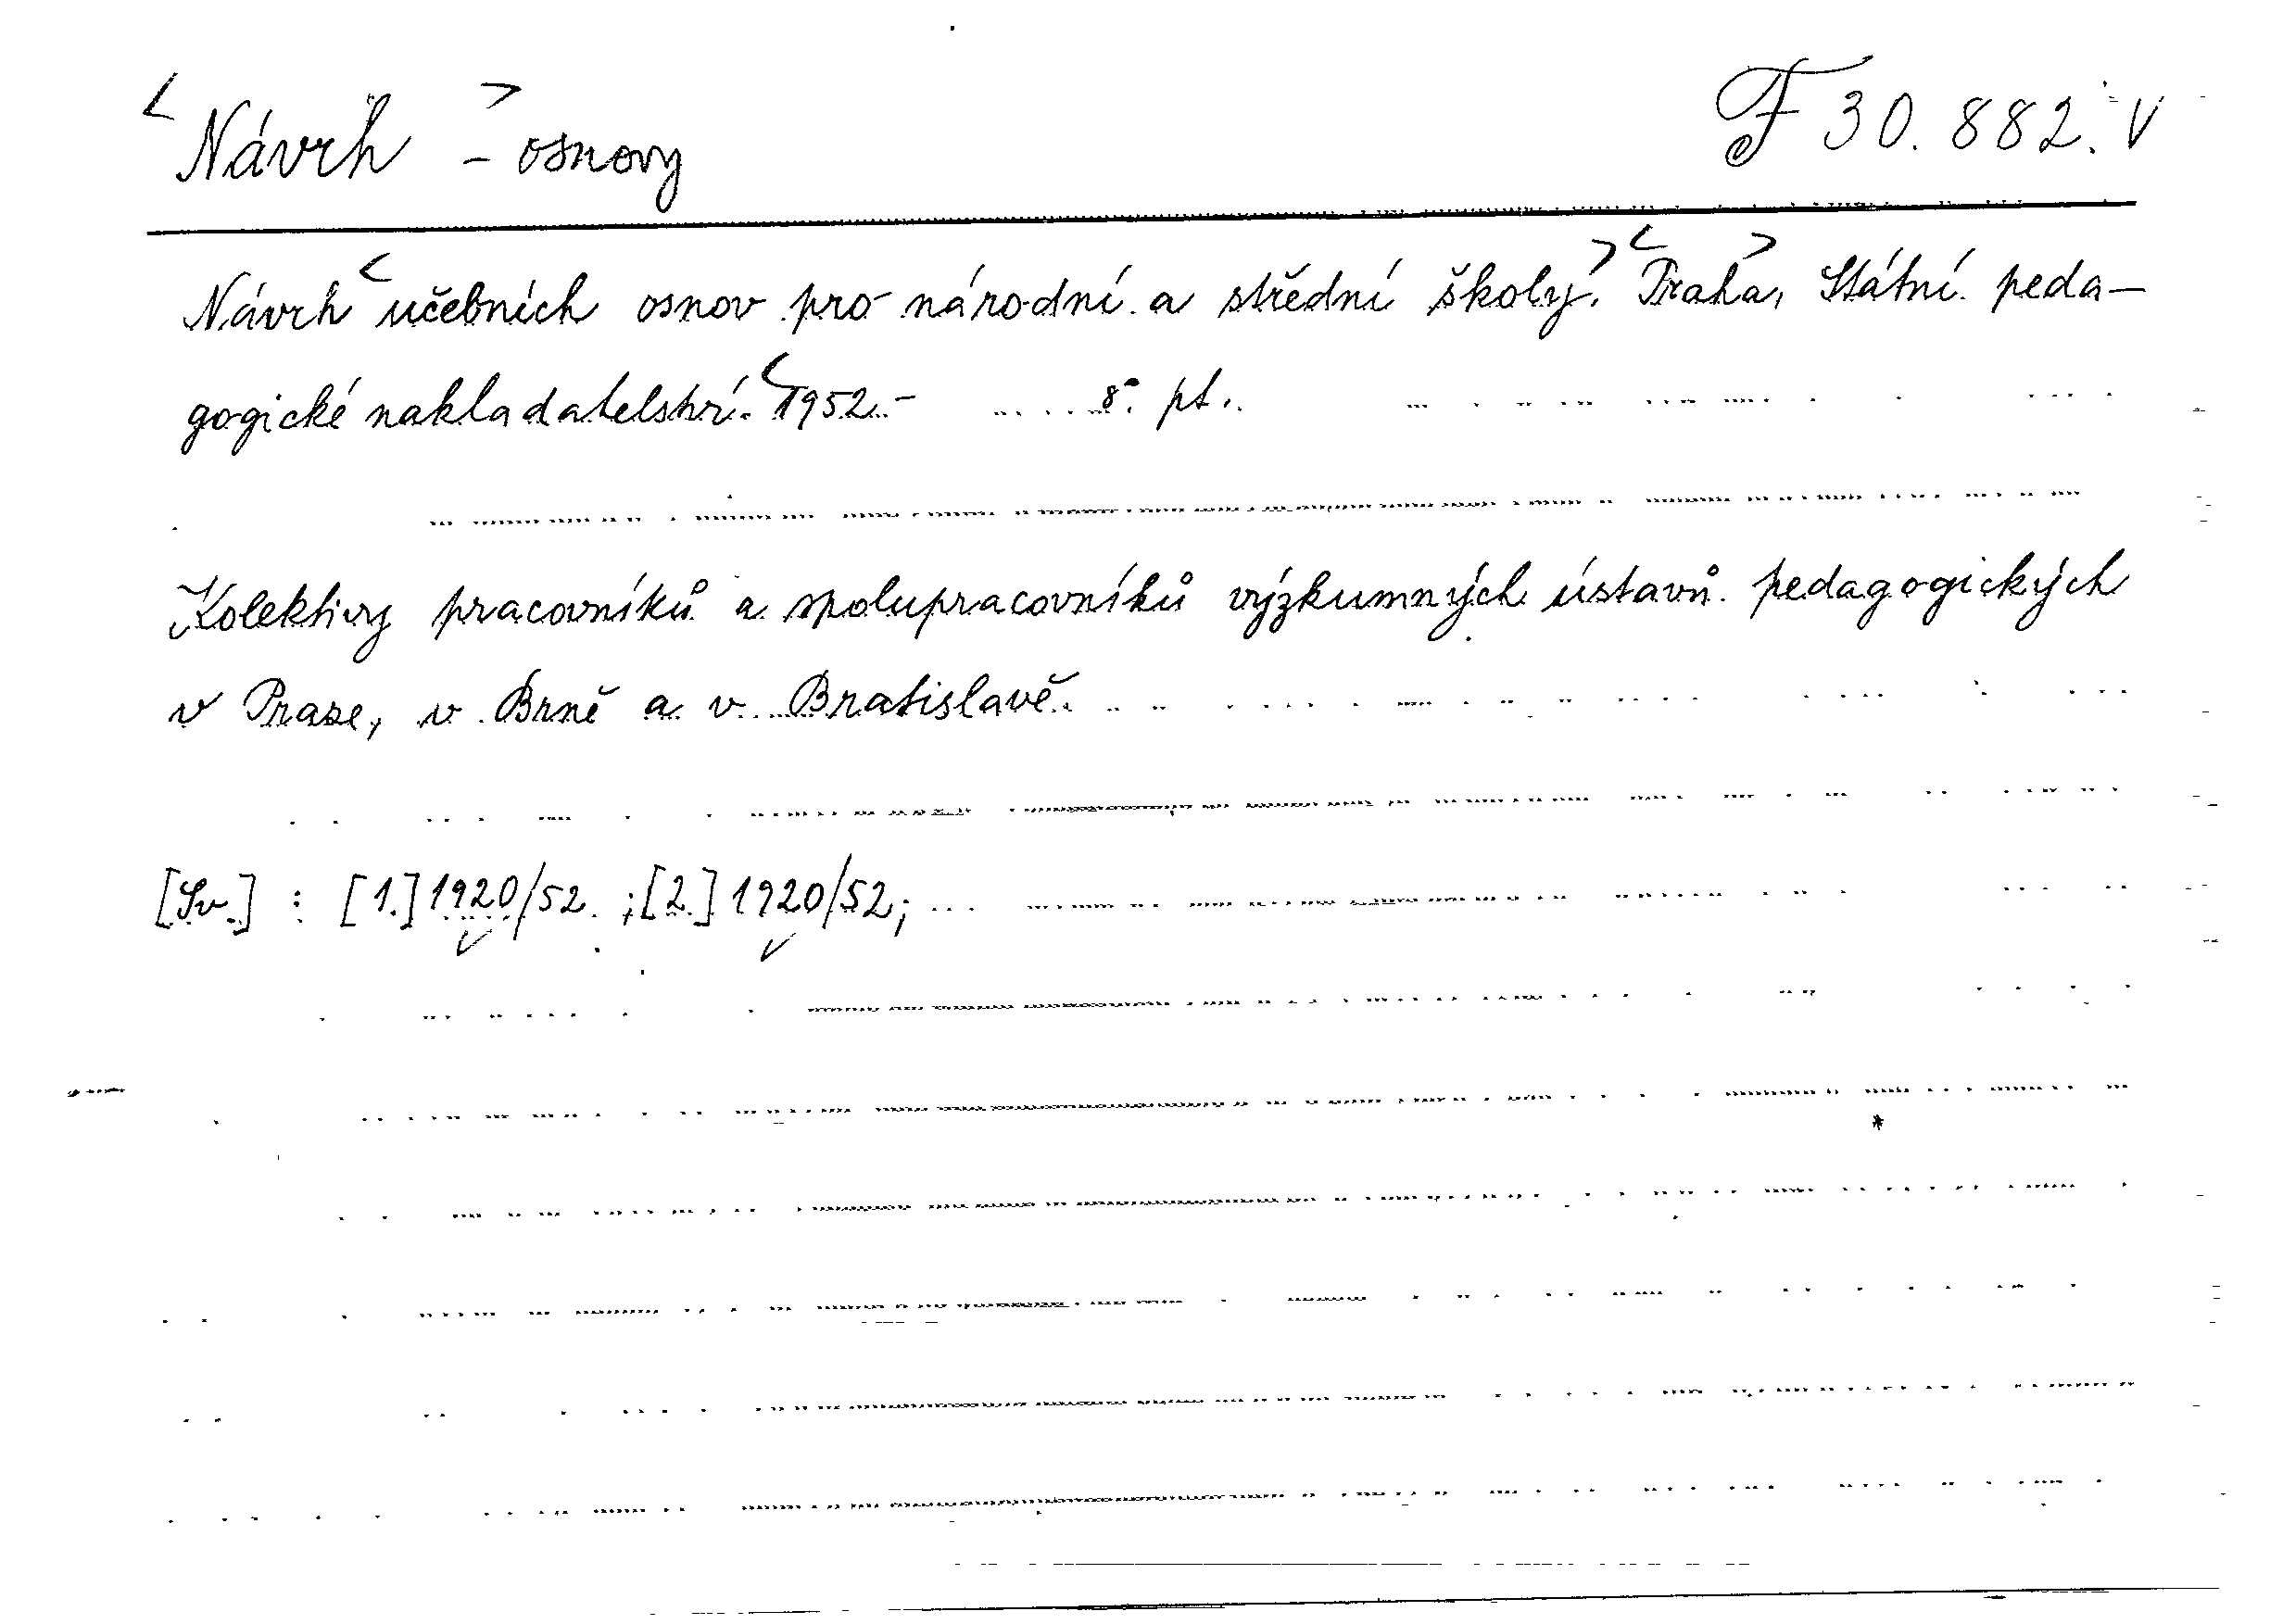 <Návrh> - osnovy F 30.882. V
Návrh <učebních osnov pro národní a střední školy.> <Praha>, Státní peda-
gogické nakladatelství. <1952.- 8° pt.
Kolektivy pracovníků a spolupracovníků výzkumných ústavů pedagogických
v Praze, v Brně a v Bratislavě.
[Sv.] : [1.] 1920/52. ; [2.] 1920/52;